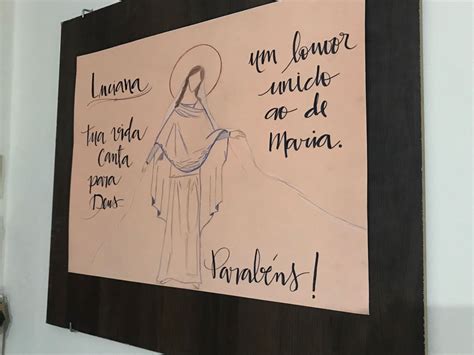 Luciana
tua vida
canta
para
Deus
um louvor
unido
ao de
Maria.
Parabéns!